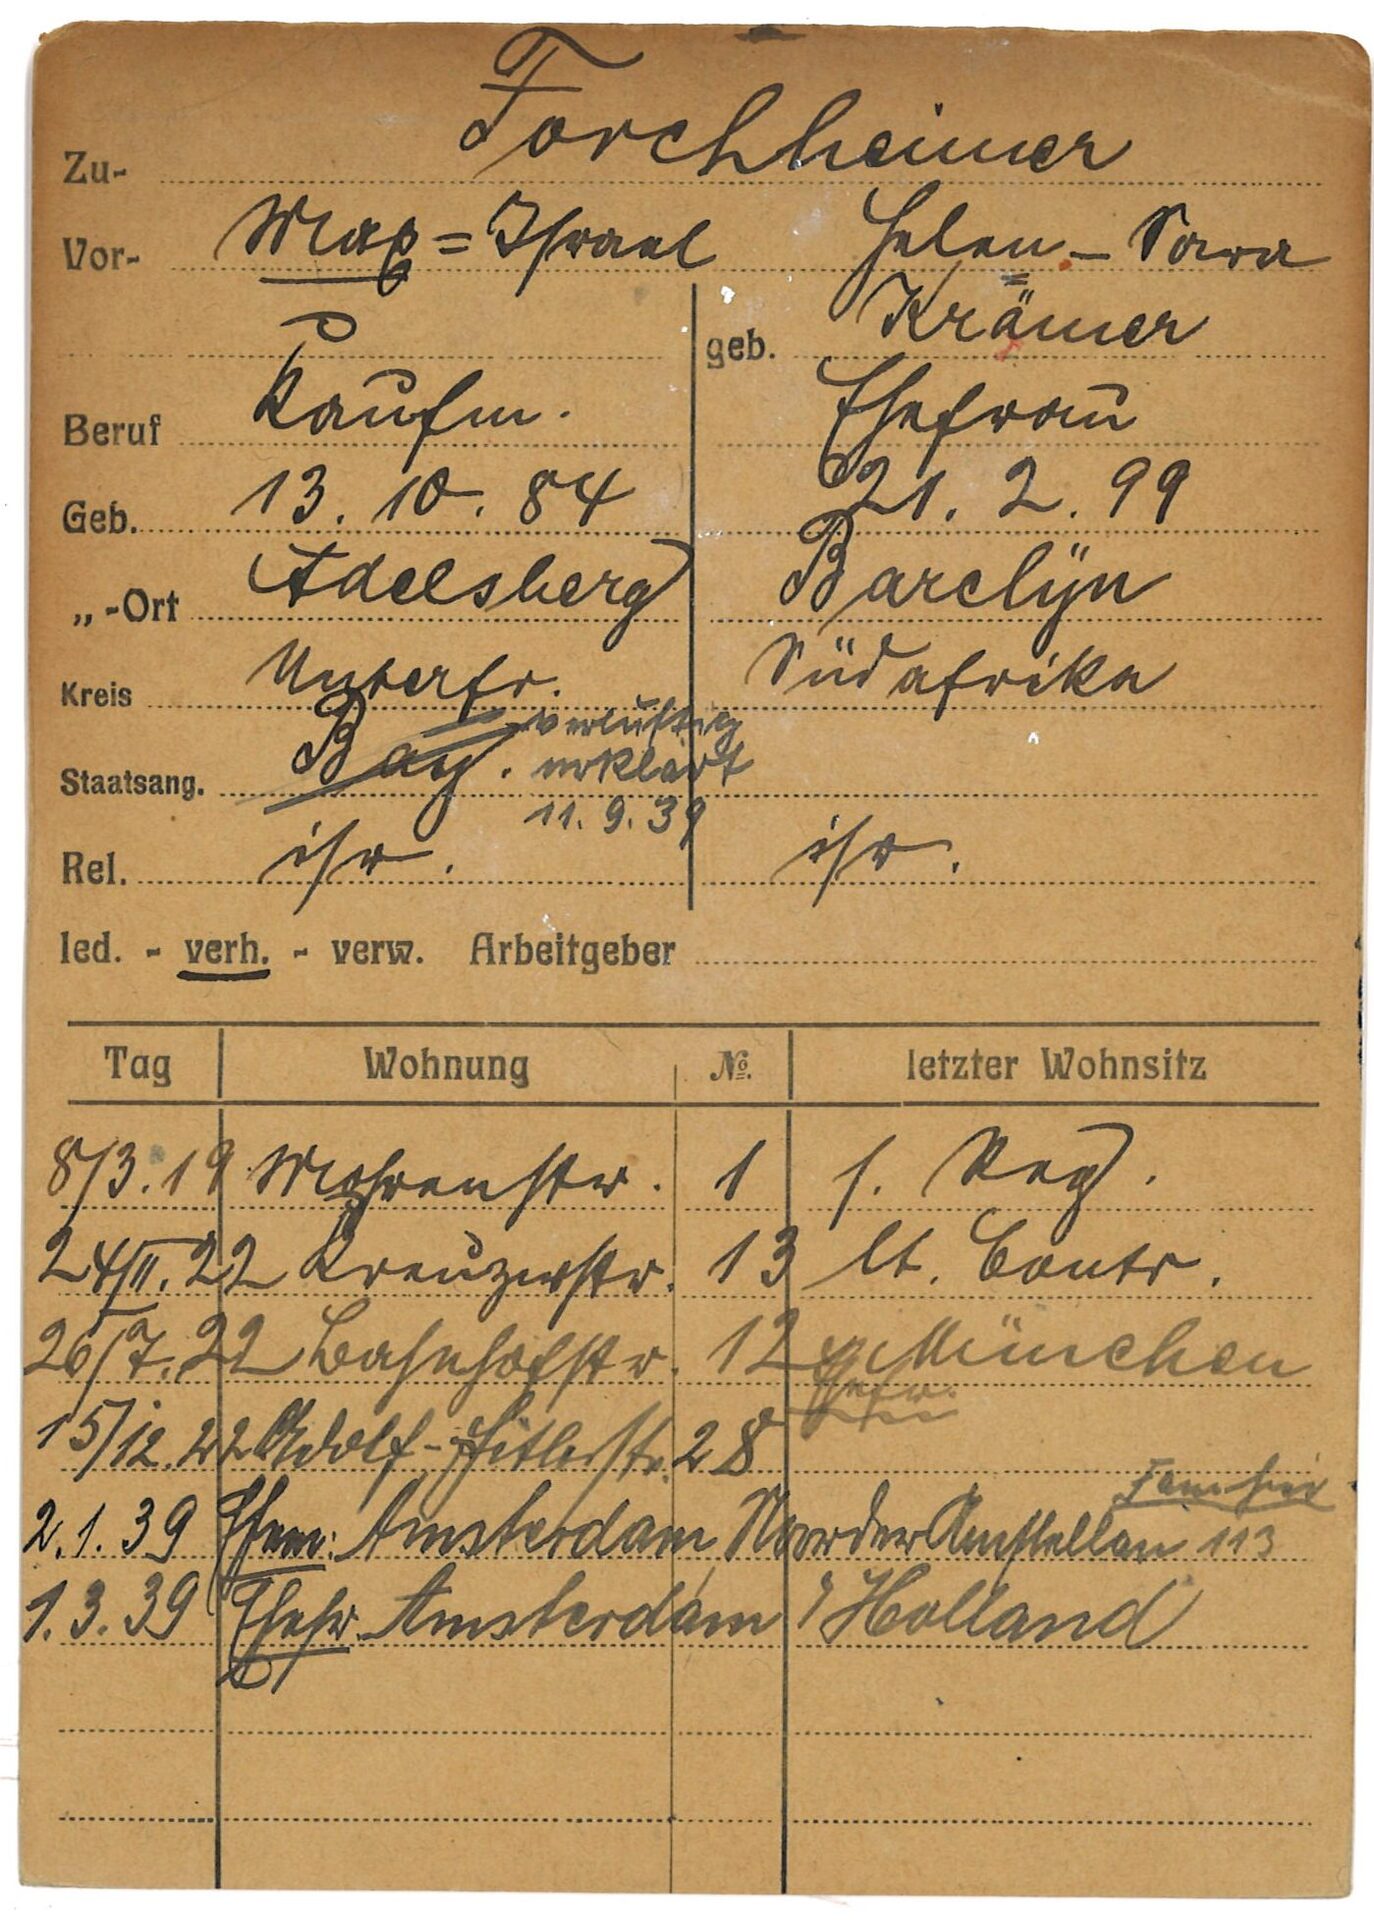 Forchheimer
Zu-
Vor- Max = Israel Helen - Sara
geb. Krämer
Beruf Kaufm. Ehefrau
Geb. 13. 10. 84 21. 2. 99
„-Ort Adelsberg Barclÿn
Kreis Unterfr. Südafrika
verlustig
Staatsang. Bay. erklärt
11. 9. 39
Rel. isr. isr.
led. - verh. - verw. Arbeitgeber
Tag Wohnung No. letzter Wohnsitz
8/3. 19 Mohrenstr. 1 s. Reg.
24/II. 22 Kreuzerstr. 13 lt. Contr.
26/7. 22 Bahnhofstr. 12 München
Ehefr.
15/12. 22 Adolf-Hitlerstr. 28
2. 1. 39 Ehem: Amsterdam, Noorder Amstellan 113
1. 3. 39 Ehefr. Amsterdam / Holland